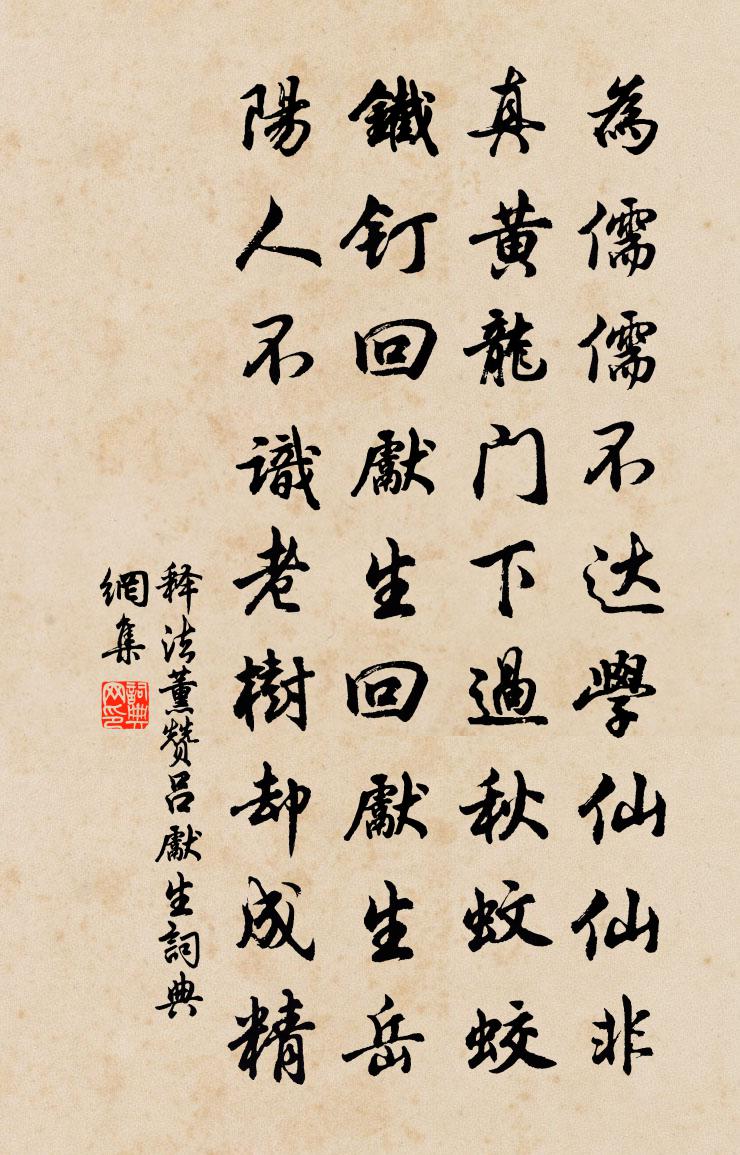 為儒儒不达學仙仙非
真黄龍门下過秋蚊蛟
鐵釘回獻生回獻生岳
陽人不識老樹却成精
释法薰赞吕獻生詞典
網集
詞典网印